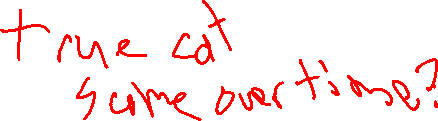 true cat
same over time?